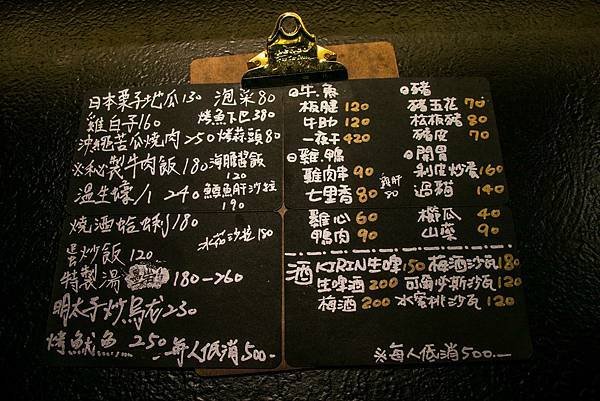 日本栗子地瓜130 泡菜80
雞白子160 烤魚下巴380
沖繩苦瓜燒肉250 烤蒜頭80
※私製牛肉飯180 海膽醬飯120
溫生蠔/1 240 鱈魚肝沙拉190
燒酒蛤蜊180
冰花沙拉180
蛋炒飯120
特製湯 180-260
明太子炒烏龙230
烤魷魚250 每人低消500-
◎牛.魚
板腱120
牛肋120
一夜干420
◎雞.鴨
雞肉串90
七里香80 雞肝80
雞心60
鴨肉90
◎豬
豬五花70
松板豬80
豬皮70
◎開胃
皮炒蛋160
過貓140
櫛瓜40
山藥90
酒 KIRIN生啤150 梅酒沙瓦180
生啤酒200 可爾必斯沙瓦120
梅酒200 水蜜桃沙瓦120
※每人低消500.-